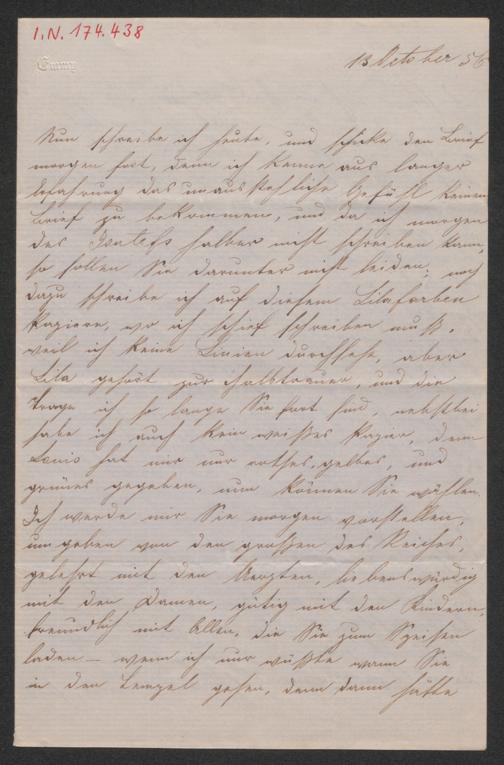 I.N. 174.438
13 October 56
Nun schreibe ich heute, und schicke den Brief
morgen fort, denn ich kenne aus langer
Erfahrung das unausstehliche Gefühl keinen
Brief zu bekommen, und da ich morgen
des halber nicht schreiben kann,
so sollen Sie darunter nicht leiden, noch
dazu schreibe ich auf diesem Lilafarben
Papiere, wo ich schief schreiben muß,
weil ich keine Linien durchsehe, aber
Lila gehört zur Halbtrauer, und die
trage ich so lange Sie fort sind, nebstbei
habe ich auch kein weißes Papier, denn
Louis hat mir nur rothes, gelbes, und
grünes gegeben, nun können Sie wählen.
Ich werde mir Sie morgen vorstellen,
umgeben von den großen des Reiches,
gelehrt mit den Aerzten, liebenswürdig
mit den Damen, gütig mit den Kindern,
freundlich mit Allen, die Sie zum Speisen
laden – wenn ich nur wüßte wann Sie
in den Tempel gehen, denn dann hätte